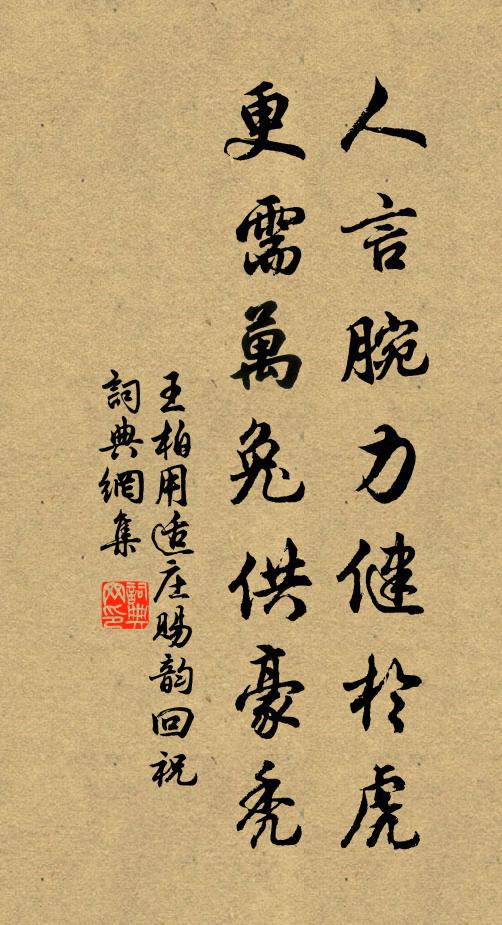 人言腕力健於虎
更需萬兔供豪禿
王柏用适庄賜韵回祝
詞典網集
詞典网印